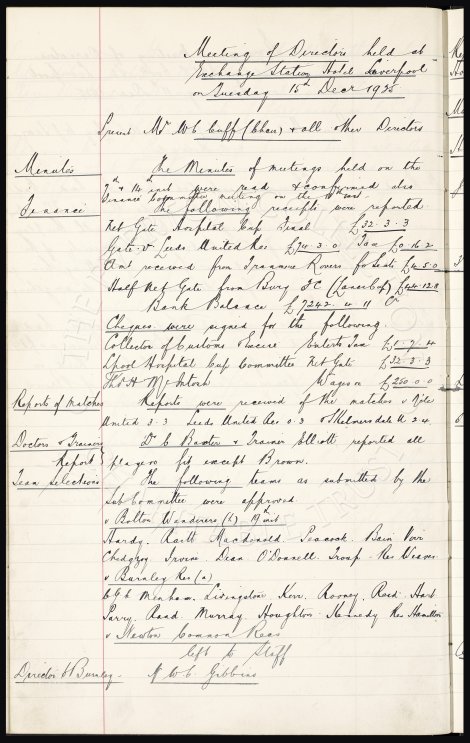 Meeting of Directors held at
Exchange Station Hotel Liverpool
on Tuesday 15th Decr 1925
Present Mr W C Cuff (Chair) & all other Directors
Minutes The Minutes of meetings held on the
7th & 14th inst were read & confirmed also
Finance Committee meeting on the
Finance The following receipts were reported
Net Gate Hospital Cup Final £32.3.3
Gate v. Leeds United Res £74.3.0 Tax £0.16.2
Amt received from Tranmere Rovers for Seats £4.5.0
Half Net Gate from Bury FC (Lancs Cup) £44.12.8
Bank Balance £7242.4.11 Cr
Cheques were signed for the following.
Collector of Customs Excise Enterts Tax
Lpool Hospital Cup Committee Net Gate £32.3.3
Thos H McIntosh Wages £250.0.0
Reports of Matches Reports were received of the matches v Notts
United 3-3 Leeds United Res 0.3 & Skelmersdale U 2.4.
Doctors & Trainers Dr C Baxter & Trainer Elliott reported all
Report players fit except Brown.
Team Selections The following teams as submitted by the
Sub Committee were approved.
v Bolton Wanderers (h) 19th inst
Hardy. Raitt Macdonald. Peacock. Bain Virr
Chedgzoy. Irvine. Dean O'Donnell. Troup. Res Weaver
v Burnley Res (a)
Menham, Livingstone Kerr. Rooney. Reid. Hart
Parry. Rand. Murray. Houghton. Kennedy Res Hamilton
v Newton Common Recs
left to Staff
Director to Burnley. Mr W C Gibbins